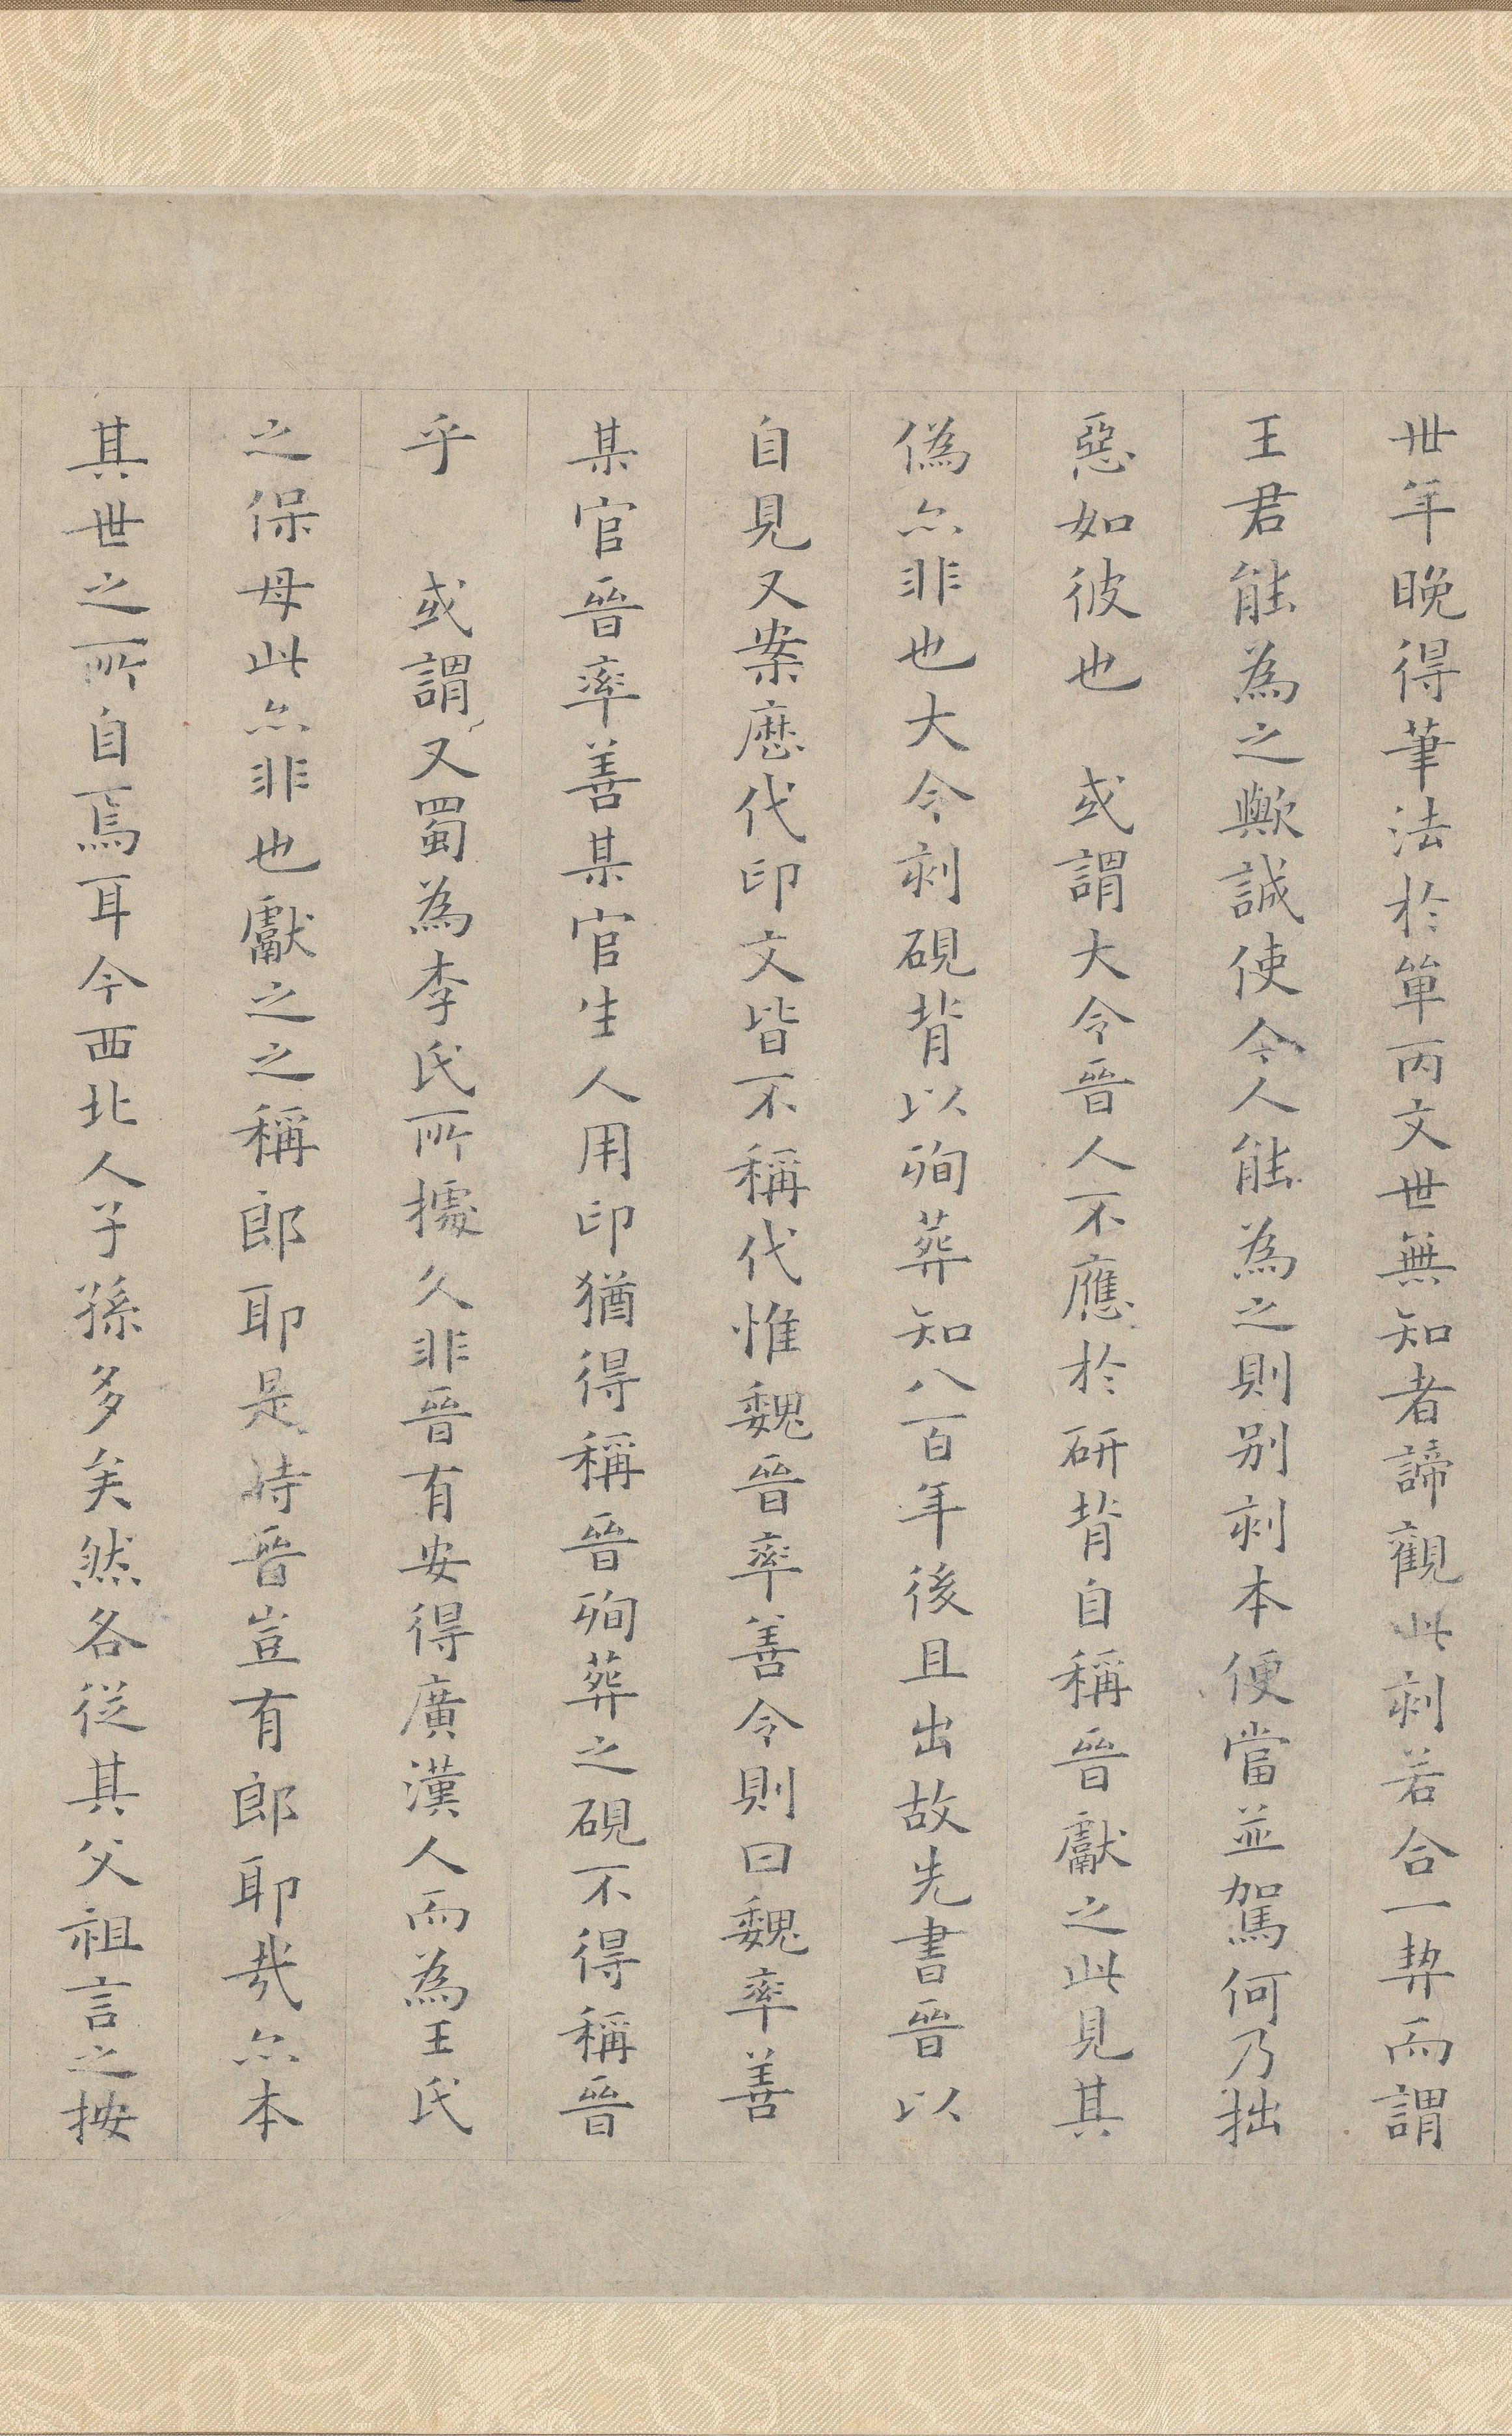 丗年晩得筆法於單丙文世無知者諦觀此刻若合一契而謂
王君能為之歟誠使今人能為之則别刻本便當並駕何乃拙
惡如彼也　或謂大令晉人不應於研背自稱晉獻之此見其
偽亦非也大令刻硯背以殉葬知八百年後且出故先書晉以
自見又案歷代印文皆不稱代惟魏晉率善令則曰魏率善
某官晉率善某官生人用印猶得稱晉殉葬之硯不得稱晉
乎　或謂又蜀為李氏所據久非晉有安得廣漢人而為王氏
之保母此亦非也獻之之稱郎耶是時晉豈有郎耶哉亦本
其世之所自焉耳今西北人子孫多矣然各從其父祖言之按